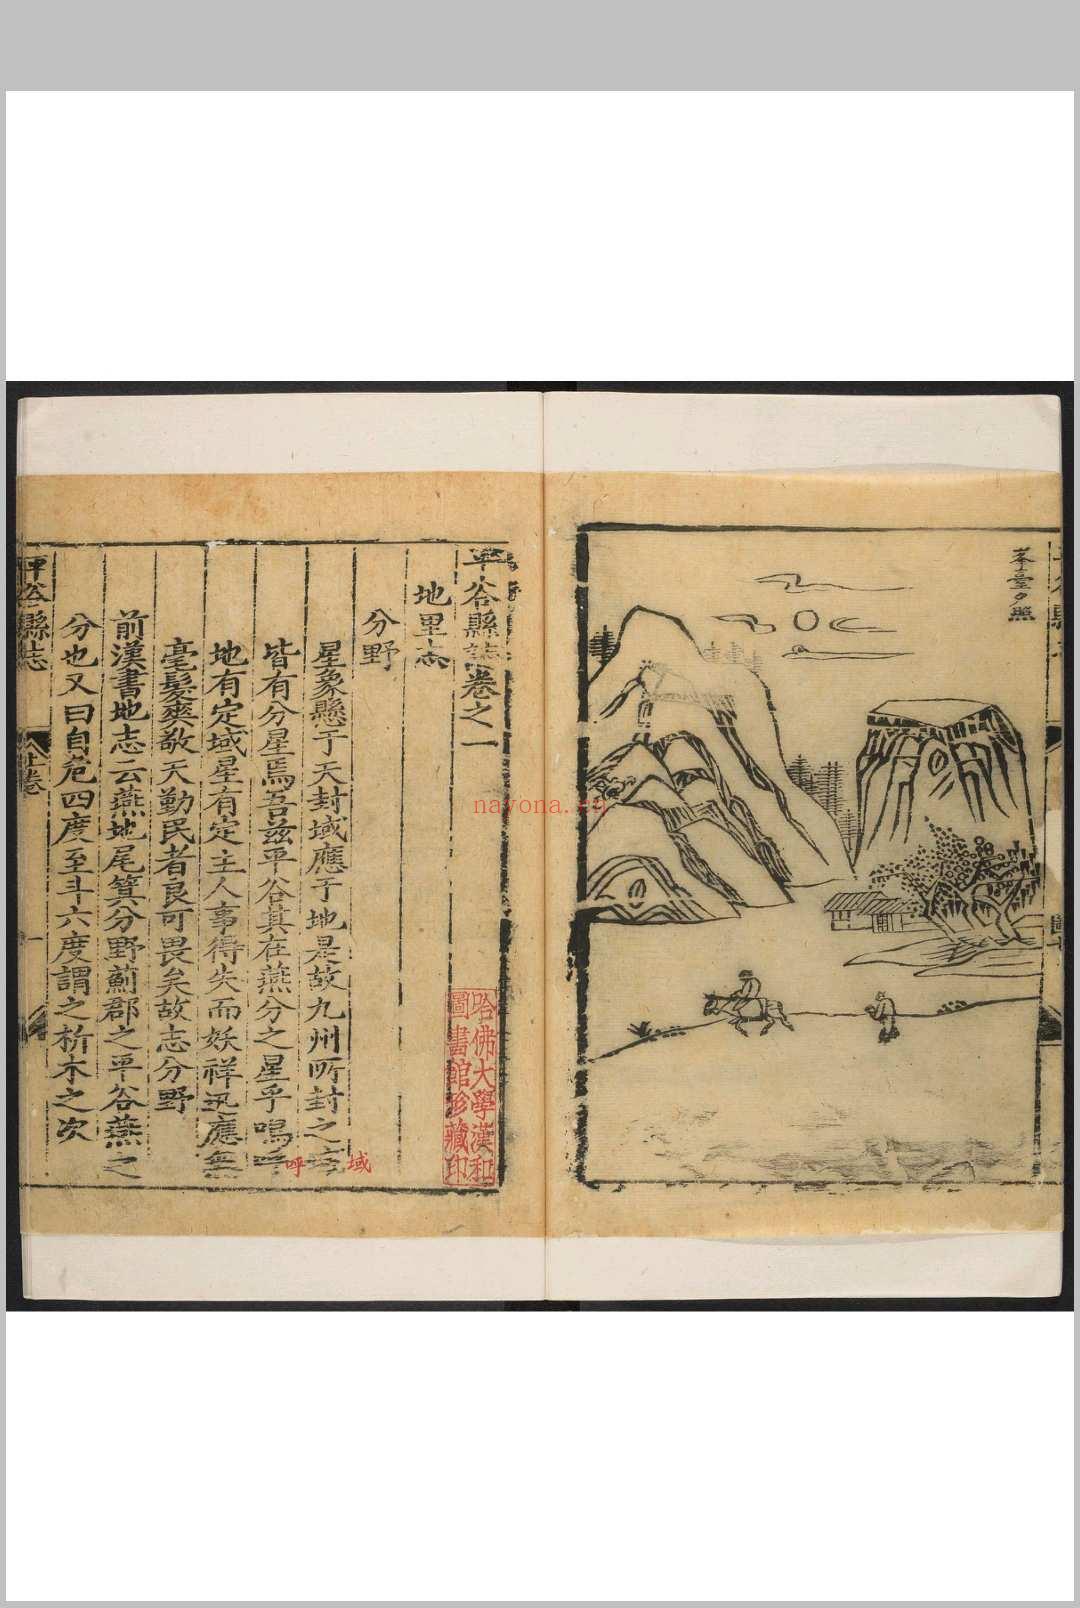 峯臺夕照
平谷縣誌卷之一
地里志
分野
星象懸于天封域應于地是故九州所封之域
皆有分星焉吾茲平谷其在燕分之星乎嗚呼
地有定域星有定主人事得失而妖祥迅應無
毫髮爽敬天勤民者良可畏矣故志分野
前漢書地志云燕地尾箕分野薊郡之平谷燕之
分也又曰自危四度至斗六度謂之析木之次
平谷縣誌
域
呼
哈佛大學漢和
圖書館珍藏印
nayona.cn